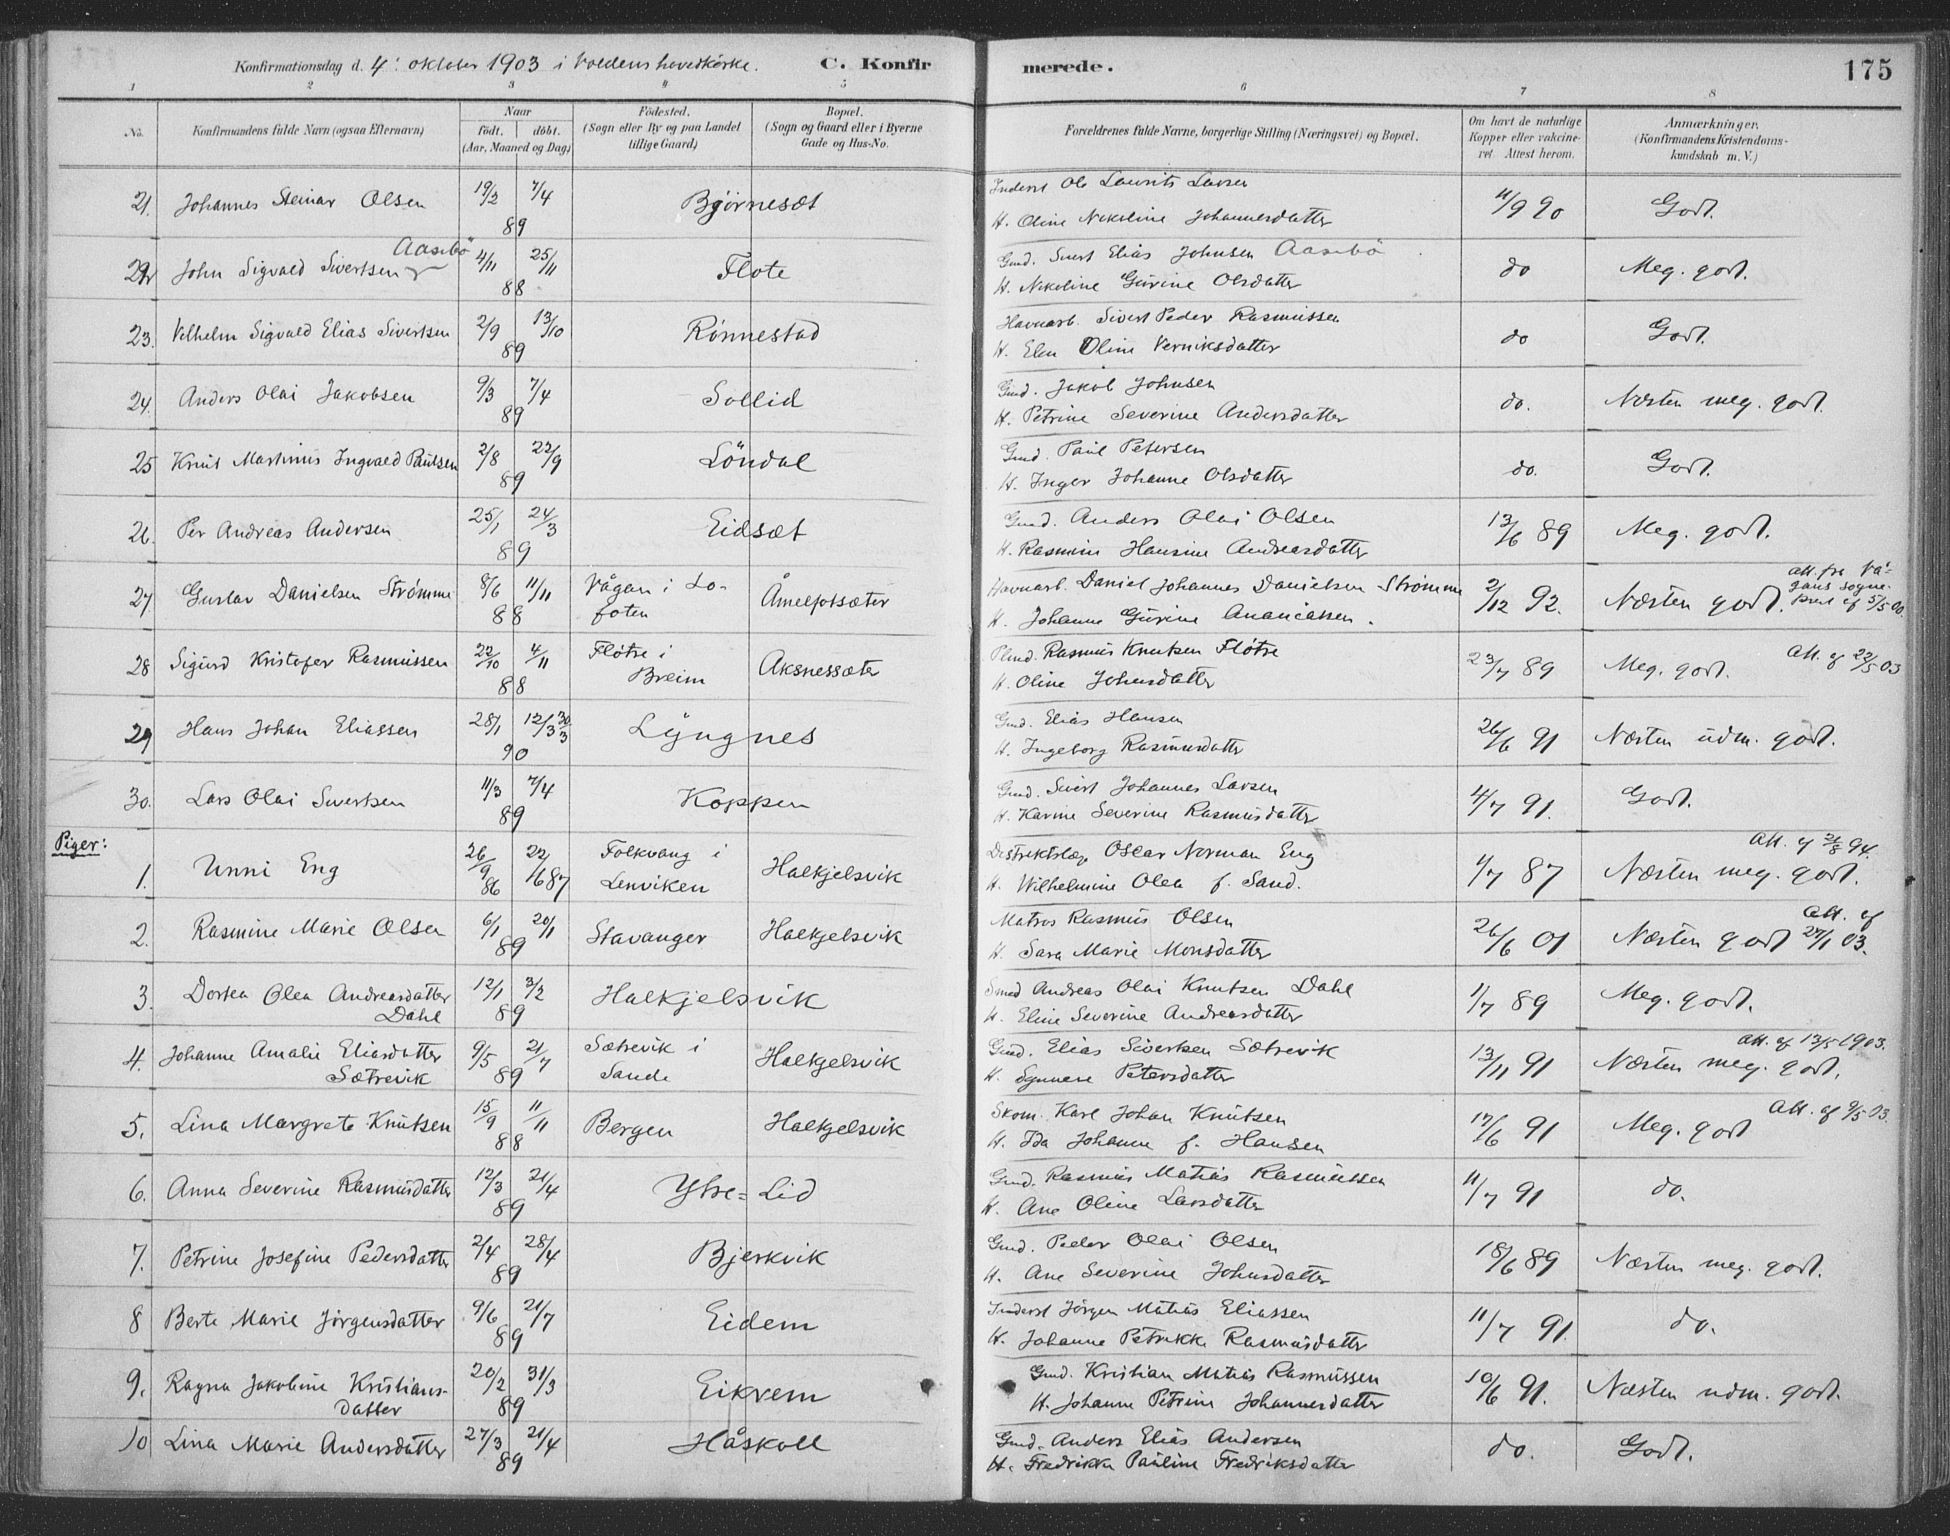 Konfirmationsdag d. 4' oktober 1903 i Voldens hovedkirke. C. Konfirmerede. 175
1 2 3 4 5 6 7 8
No. Konfirmandens fulde Navn (ogsaa Efternavn) Naar födt. döbt. (Aar, Maaned og Dag) Födested. (Sogn eller By og paa Landet tillige Gaard) Bopæl. (Sogn og Gaard eller i Byerne Gade og Hus-No. Forældrenes fulde Navne, borgerlige Stilling (Næringsvei) og Bopæl. Om havt de naturlige Kopper eller vakcineret. Attest herom. Anmærkninger. (Konfirmandens Kristendomskundskab m. V.)
21. Johannes Steinar Olsen 19/2 7/4 89 Bjørnesæt Inderst Ole Laurits Larsen 11/9 90 Godt.
H. Oline Nikoline Johannesdatter
22. John Sigvald Sivertsen Aasebö 4/11 25/11 88 Flote Gmd. Sivert Elias Johnsen Aasebö do Meg. godt.
H. Nikoline Gurine Olsdatter
23. Vilhelm Sigvald Elias Sivertsen 2/9 13/10 89 Rönnestad Havnarb. Sivert Peder Rasmussen do Godt.
H. Elen Oline Verniksdatter
24. Anders Olai Jakobsen 9/3 7/4 89 Sollid Gmd. Jakob Johnsen do. Næsten meg. godt.
H. Petrine Severine Andersdatter
25 Knut Martinus Ingvald Paulsen 2/8 22/9 89 Löndal Gmd. Paul Petersen do. Godt.
H. Inger Johanne Olsdatter
26. Per Andreas Andersen 25/1 24/3 89 Eidsæt Gmd. Anders Olai Olsen 13/6 89 Meg. godt.
H. Rasmine Hansine Andreasdatter
27 Gustav Danielsen Strømme 8/6 11/11 88 Vågan i Lofoten Åmelfotsæter Havnarb. Daniel Johannes Danielsen Strømme 2/12 92. Næsten godt. att. fra Vågans sogneprest af 5/5 00.
H. Johanne Gurine Ananiassen.
28 Sigurd Kristofer Rasmussen 22/10 4/11 88 Fløtre i Breim Aksnessæter Plmd. Rasmus Knutsen Fløtre 23/7 89 Meg. godt. Att. af 22/5 03
H. Oline Johnsdatter
29 Hans Johan Eliassen 28/1 12/3 30/3 90 Lyngnes Gmd. Elias Hansen 26/6 91 Næsten udm. godt.
H. Ingeborg Rasmusdatter
30. Lars Olai Sivertsen 11/3 7/4 89 Koppen Gmd. Sivert Johannes Larsen 4/7 91. Godt.
H. Karine Severine Rasmusdatter
Piger:
1. Unni Eng 26/9 86 22/6 87 Folkvang i Lenviken Halkjelsvik Distriktslæge Oscar Norman Eng 4/7 87 Næsten meg. godt. Att. af 21/8 94.
H. Wilhelmine Olea f. Sand.
2. Rasmine Marie Olsen 6/1 20/1 89 Stavanger Halkjelsvik Matros Rasmus Olsen 26/6 01 Næsten godt Att. af 27/1 03.
H. Sara Marie Monsdatter
3. Dortea Olea Andreasdatter Dahl 12/1 3/2 89 Halkjelsvik Smed Andreas Olai Knutsen Dahl 1/7 89 Meg. godt.
H. Eline Severine Andreasdatter
4. Johanne Amalie Eliasdatter Sætrevik 9/5 21/7 89 Sætrevik i Sande Halkjelsvik Gmd. Elias Sivertsen Sætrevik 13/11 91 Næsten meg. godt. Att. af 13/5 1903.
H. Synnere Petersdatter
5. Lina Margrete Knutsen 15/9 11/11 88 Bergen Halkjelsvik Skom. Karl Johan Knutsen 17/6 91 Meg. godt Att. af 9/5 03.
H. Ida Johanne f. Hansen
6. Anna Severine Rasmusdatter 12/3 21/4 89 Ytre-Lid Gmd. Rasmus Matias Rasmussen 11/7 91 do.
H. Ane Oline Larsdatter
7. Petrine Josefine Pedersdatter 2/4 28/4 89 Bjerkvik Gmd. Peder Olai Olsen 18/6 89 Næsten meg. godt.
H. Ane Severine Johnsdatter
8 Berte Marie Jörgensdatter 9/6 21/7 89 Eidem Inderst Jörgen Matias Eliassen 11/7 91. do.
H. Johanne Petrikke Rasmusdatter
9. Ragna Jakobine Kristiansdatter 20/2 31/3 89 Eikrem Gmd. Kristian Matias Rasmussen 10/6 91. Næsten udm. godt.
H. Johanne Petrine Johannesdatter
10 Lina Marie Andersdatter 27/3 21/4 89 Håskoll Gmd. Anders Elias Andersen do. Godt.
H. Fredrikke Pauline Fredriksdatter